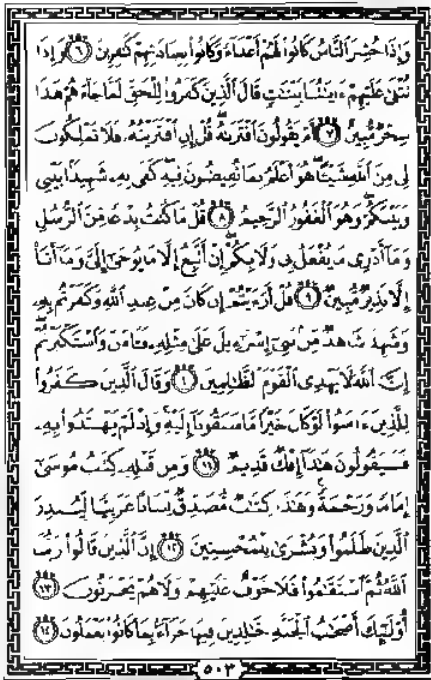 وَإِذَا حُشِرَ ٱلنَّاسُ كَانُوا۟ لَهُمْ أَعْدَآءً وَكَانُوا۟ بِعِبَادَتِهِمْ كَٰفِرِينَ ٦ وَإِذَا
تُتْلَىٰ عَلَيْهِمْ ءَايَٰتُنَا بَيِّنَٰتٍ قَالَ ٱلَّذِينَ كَفَرُوا۟ لِلْحَقِّ لَمَّا جَآءَهُمْ هَٰذَا
سِحْرٌ مُّبِينٌ ٧ أَمْ يَقُولُونَ ٱفْتَرَىٰهُ قُلْ إِنِ ٱفْتَرَيْتُهُۥ فَلَا تَمْلِكُونَ
لِى مِنَ ٱللَّهِ شَيْـًٔا هُوَ أَعْلَمُ بِمَا تُفِيضُونَ فِيهِ كَفَىٰ بِهِۦ شَهِيدًۢا بَيْنِى
وَبَيْنَكُمْ وَهُوَ ٱلْغَفُورُ ٱلرَّحِيمُ ٨ قُلْ مَا كُنتُ بِدْعًا مِّنَ ٱلرُّسُلِ
وَمَآ أَدْرِى مَا يُفْعَلُ بِى وَلَا بِكُمْ إِنْ أَتَّبِعُ إِلَّا مَا يُوحَىٰٓ إِلَىَّ وَمَآ أَنَا۠
إِلَّا نَذِيرٌ مُّبِينٌ ٩ قُلْ أَرَءَيْتُمْ إِن كَانَ مِنْ عِندِ ٱللَّهِ وَكَفَرْتُم بِهِۦ
وَشَهِدَ شَاهِدٌ مِّنۢ بَنِىٓ إِسْرَٰٓءِيلَ عَلَىٰ مِثْلِهِۦ فَـَٔامَنَ وَٱسْتَكْبَرْتُمْ
إِنَّ ٱللَّهَ لَا يَهْدِى ٱلْقَوْمَ ٱلظَّٰلِمِينَ ١٠ وَقَالَ ٱلَّذِينَ كَفَرُوا۟
لِلَّذِينَ ءَامَنُوا۟ لَوْ كَانَ خَيْرًا مَّا سَبَقُونَآ إِلَيْهِ وَإِذْ لَمْ يَهْتَدُوا۟ بِهِۦ
فَسَيَقُولُونَ هَٰذَآ إِفْكٌ قَدِيمٌ ١١ وَمِن قَبْلِهِۦ كِتَٰبُ مُوسَىٰٓ
إِمَامًا وَرَحْمَةً وَهَٰذَا كِتَٰبٌ مُّصَدِّقٌ لِّسَانًا عَرَبِيًّا لِّيُنذِرَ
ٱلَّذِينَ ظَلَمُوا۟ وَبُشْرَىٰ لِلْمُحْسِنِينَ ١٢ إِنَّ ٱلَّذِينَ قَالُوا۟ رَبُّنَا
ٱللَّهُ ثُمَّ ٱسْتَقَٰمُوا۟ فَلَا خَوْفٌ عَلَيْهِمْ وَلَا هُمْ يَحْزَنُونَ ١٣
أُو۟لَٰٓئِكَ أَصْحَٰبُ ٱلْجَنَّةِ خَٰلِدِينَ فِيهَا جَزَآءًۢ بِمَا كَانُوا۟ يَعْمَلُونَ ١٤
٥٠٣